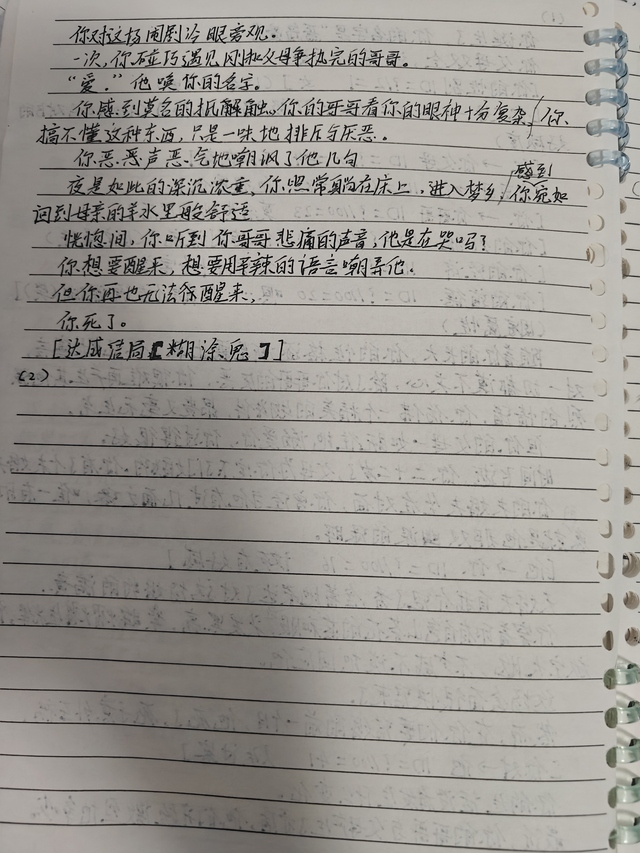 你对这场闹剧冷眼旁观。
一次,你碰巧遇见刚和父母争执完的哥哥。
“爱.”他唤你的名字。
你感到莫名的抵触。你的哥哥看你的眼神十分复杂,你
搞不懂这种东西,只是一味地排斥与厌恶。
你恶声恶气地嘲讽了他几句
夜是如此的深沉浓重,你照常躺在床上,进入梦乡,感到你宛如
回到母亲的羊水里般舒适
恍惚间,你听到你哥哥悲痛的声音,他是在哭吗?
你想要醒来,想要用辛辣的语言嘲弄他。
但你再也无法醒来,
你死了。
[达成结局【糊涂鬼】]
(2)